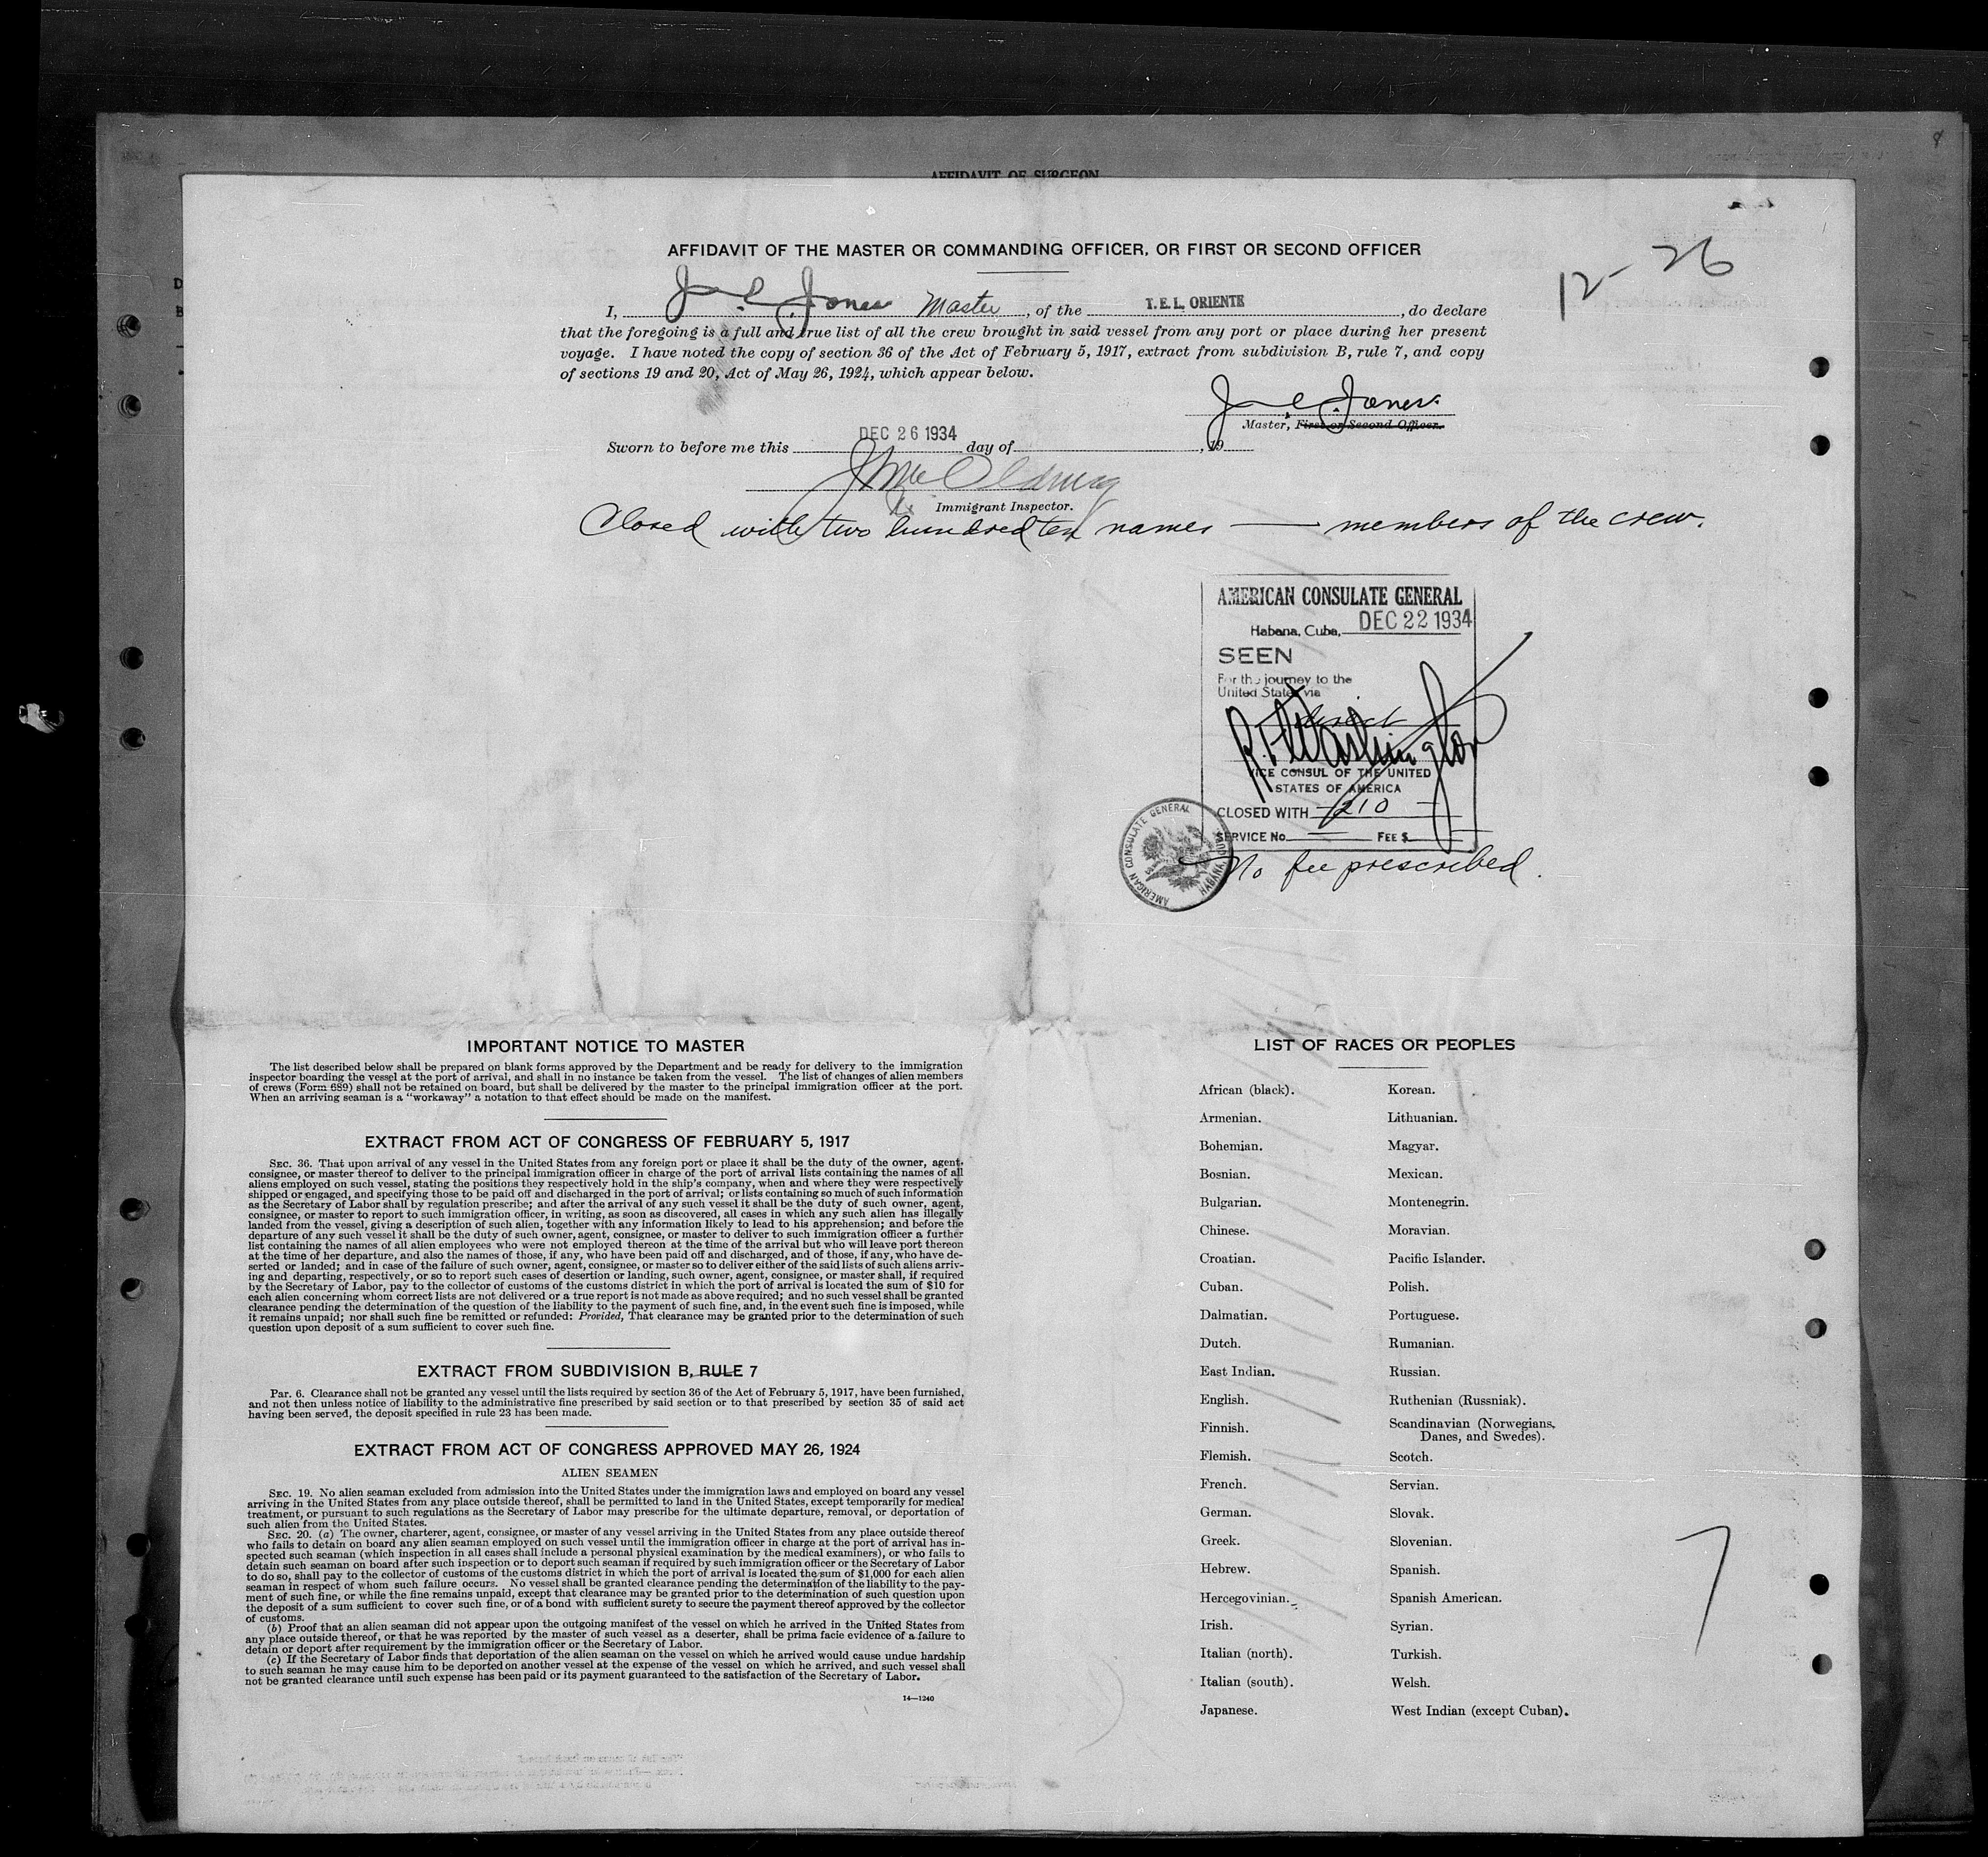 AFFIDAVIT OF SURGEON
AFFIDAVIT OF THE MASTER OR COMMANDING OFFICER, OR FIRST OR SECOND OFFICER
12-26
I, J. E. Jones Master, of the T.E.L. ORIENTE, do declare
that the foregoing is a full and true list of all the crew brought in said vessel from any port or place during her present
voyage. I have noted the copy of section 36 of the Act of February 5, 1917, extract from subdivision B, rule 7, and copy
of sections 19 and 20, Act of May 26, 1924, which appear below.
J. E. Jones
Master, First or Second Officer.
Sworn to before me this DEC 26 1934 day of , 19
Immigrant Inspector.
Closed with two hundred ten names — members of the crew.
AMERICAN CONSULATE GENERAL
Habana, Cuba, DEC 22 1934
SEEN
For the journey to the
United States via
direct
R. F. Washington
VICE CONSUL OF THE UNITED
STATES OF AMERICA
CLOSED WITH - 210 -
SERVICE No. — FEE $ —
No fee prescribed.
AMERICAN CONSULATE GENERAL HABANA, CUBA
IMPORTANT NOTICE TO MASTER
The list described below shall be prepared on blank forms approved by the Department and be ready for delivery to the immigration
inspector boarding the vessel at the port of arrival, and shall in no instance be taken from the vessel. The list of changes of alien members
of crews (Form 689) shall not be retained on board, but shall be delivered by the master to the principal immigration officer at the port.
When an arriving seaman is a "workaway" a notation to that effect should be made on the manifest.
EXTRACT FROM ACT OF CONGRESS OF FEBRUARY 5, 1917
SEC. 36. That upon arrival of any vessel in the United States from any foreign port or place it shall be the duty of the owner, agent,
consignee, or master thereof to deliver to the principal immigration officer in charge of the port of arrival lists containing the names of all
aliens employed on such vessel, stating the positions they respectively hold in the ship's company, when and where they were respectively
shipped or engaged, and specifying those to be paid off and discharged in the port of arrival; or lists containing so much of such information
as the Secretary of Labor shall by regulation prescribe; and after the arrival of any such vessel it shall be the duty of such owner, agent,
consignee, or master to report to such immigration officer, in writing, as soon as discovered, all cases in which any such alien has illegally
landed from the vessel, giving a description of such alien, together with any information likely to lead to his apprehension; and before the
departure of any such vessel it shall be the duty of such owner, agent, consignee, or master to deliver to such immigration officer a further
list containing the names of all alien employees who were not employed thereon at the time of the arrival but who will leave port thereon
at the time of her departure, and also the names of those, if any, who have been paid off and discharged, and of those, if any, who have de-
serted or landed; and in case of the failure of such owner, agent, consignee, or master so to deliver either of the said lists of such aliens arriv-
ing and departing, respectively, or so to report such cases of desertion or landing, such owner, agent, consignee, or master shall, if required
by the Secretary of Labor, pay to the collector of customs of the customs district in which the port of arrival is located the sum of $10 for
each alien concerning whom correct lists are not delivered or a true report is not made as above required; and no such vessel shall be granted
clearance pending the determination of the question of the liability to the payment of such fine, and, in the event such fine is imposed, while
it remains unpaid; nor shall such fine be remitted or refunded: Provided, That clearance may be granted prior to the determination of such
question upon deposit of a sum sufficient to cover such fine.
EXTRACT FROM SUBDIVISION B, RULE 7
PAR. 6. Clearance shall not be granted any vessel until the lists required by section 36 of the Act of February 5, 1917, have been furnished,
and not then unless notice of liability to the administrative fine prescribed by said section or to that prescribed by section 35 of said act
having been served, the deposit specified in rule 23 has been made.
EXTRACT FROM ACT OF CONGRESS APPROVED MAY 26, 1924
ALIEN SEAMEN
SEC. 19. No alien seaman excluded from admission into the United States under the immigration laws and employed on board any vessel
arriving in the United States from any place outside thereof, shall be permitted to land in the United States, except temporarily for medical
treatment, or pursuant to such regulations as the Secretary of Labor may prescribe for the ultimate departure, removal, or deportation of
such alien from the United States.
SEC. 20. (a) The owner, charterer, agent, consignee, or master of any vessel arriving in the United States from any place outside thereof
who fails to detain on board any alien seaman employed on such vessel until the immigration officer in charge at the port of arrival has in-
spected such seaman (which inspection in all cases shall include a personal physical examination by the medical examiners), or who fails to
detain such seaman on board after such inspection or to deport such seaman if required by such immigration officer or the Secretary of Labor
to do so, shall pay to the collector of customs of the customs district in which the port of arrival is located the sum of $1,000 for each alien
seaman in respect of whom such failure occurs. No vessel shall be granted clearance pending the determination of the liability to the pay-
ment of such fine, or while the fine remains unpaid, except that clearance may be granted prior to the determination of such question upon
the deposit of a sum sufficient to cover such fine, or of a bond with sufficient surety to secure the payment thereof approved by the collector
of customs.
(b) Proof that an alien seaman did not appear upon the outgoing manifest of the vessel on which he arrived in the United States from
any place outside thereof, or that he was reported by the master of such vessel as a deserter, shall be prima facie evidence of a failure to
detain or deport after requirement by the immigration officer or the Secretary of Labor.
(c) If the Secretary of Labor finds that deportation of the alien seaman on the vessel on which he arrived would cause undue hardship
to such seaman he may cause him to be deported on another vessel at the expense of the vessel on which he arrived, and such vessel shall
not be granted clearance until such expense has been paid or its payment guaranteed to the satisfaction of the Secretary of Labor.
14—1240
LIST OF RACES OR PEOPLES
African (black). Korean.
Armenian. Lithuanian.
Bohemian. Magyar.
Bosnian. Mexican.
Bulgarian. Montenegrin.
Chinese. Moravian.
Croatian. Pacific Islander.
Cuban. Polish.
Dalmatian. Portuguese.
Dutch. Rumanian.
East Indian. Russian.
English. Ruthenian (Russniak).
Finnish. Scandinavian (Norwegians,
Danes, and Swedes).
Flemish. Scotch.
French. Servian.
German. Slovak.
Greek. Slovenian.
Hebrew. Spanish.
Hercegovinian. Spanish American.
Irish. Syrian.
Italian (north). Turkish.
Italian (south). Welsh.
Japanese. West Indian (except Cuban).
7